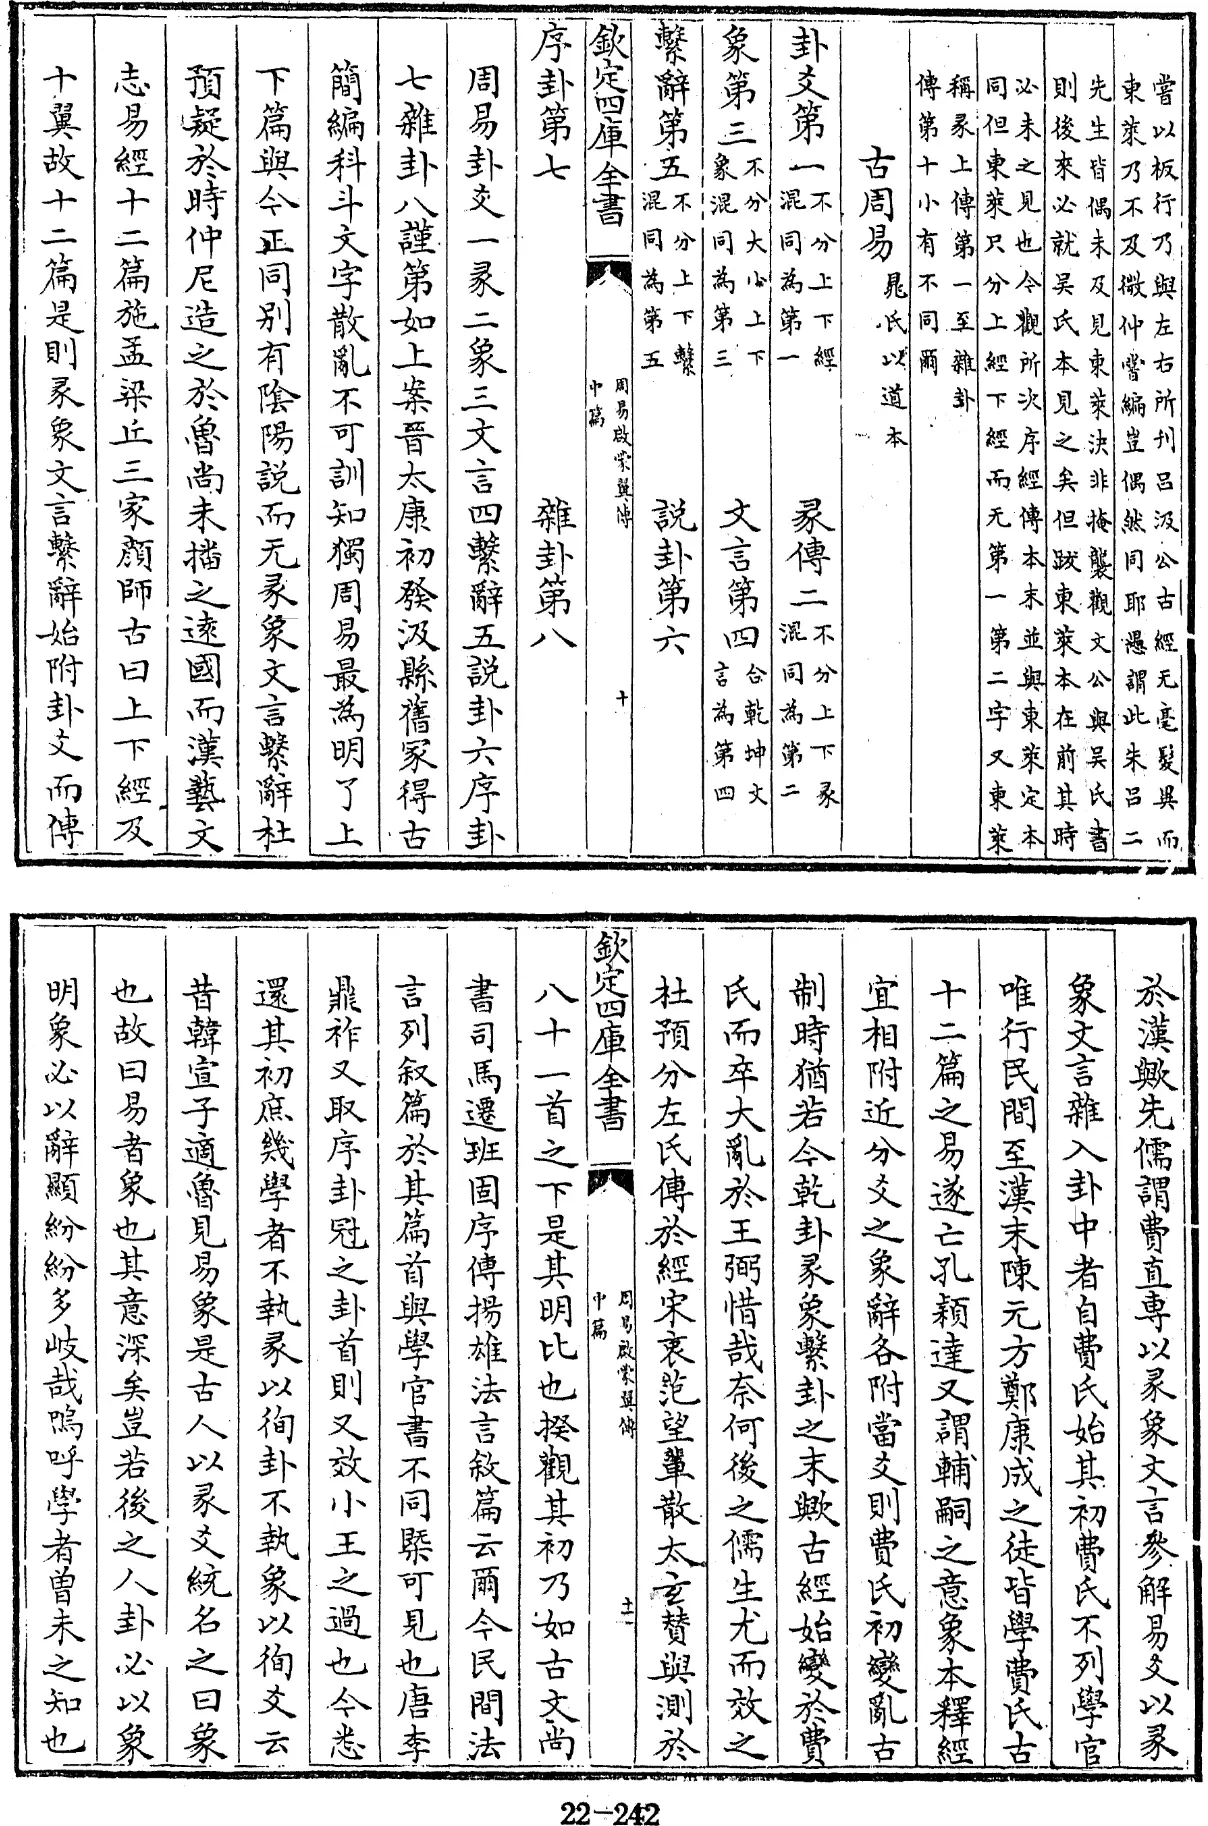 嘗以板行乃與左右所刋吕汲公古經无毫髪異而
東萊乃不及微仲嘗編豈偶然同耶愚謂此朱吕二
先生皆偶未及見東萊決非掩襲觀文公與吴氏書
則後來必就吴氏本見之矣但跋東萊本在前其時
必未之見也今觀所次序經傳本末並與東萊定本
同但東萊只分上經下經而无第一第二字又東萊
稱彖上傳第一至雜卦
傳第十小有不同爾
古周易晁氏以道本
卦爻第一不分上下經混同為第一 彖傳二不分上下彖混同為第二
象第三不分大小上下象混同為第三 文言第四合乾坤文言為第四
繫辭第五不分上下繫混同為第五 説卦第六
欽定四庫全書 周易啟蒙翼傳中篇 十
序卦第七 雜卦第八
周易卦爻一彖二象三文言四繫辭五説卦六序卦
七雜卦八謹第如上案晉太康初發汲縣舊冢得古
簡編科斗文字散亂不可訓知獨周易最為明了上
下篇與今正同别有隂陽説而无彖象文言繫辭杜
預疑於時仲尼造之於魯尚未播之逺國而漢藝文
志易經十二篇施孟梁丘三家顔師古曰上下經及
十翼故十二篇是則彖象文言繫辭始附卦爻而傳
於漢歟先儒謂費直専以彖象文言參解易爻以彖
象文言雜入卦中者自費氏始其初費氏不列學官
唯行民間至漢末陳元方鄭康成之徒皆學費氏古
十二篇之易遂亡孔穎達又謂輔嗣之意象本釋經
宜相附近分爻之象辭各附當爻則費氏初變亂古
制時猶若今乾卦彖象繫卦之末歟古經始變於費
氏而卒大亂於王弼惜哉奈何後之儒生尤而效之
杜預分左氏傳於經宋衷范望輩散太玄賛與測於
欽定四庫全書 周易啟蒙翼傳中篇 十一
八十一首之下是其明比也揆觀其初乃如古文尚
書司馬遷班固序傳揚雄法言敘篇云爾今民間法
言列叙篇於其篇首與學官書不同槩可見也唐李
鼎祚又取序卦冠之卦首則又效小王之過也今悉
還其初庶幾學者不執彖以徇卦不執象以徇爻云
昔韓宣子適魯見易象是古人以彖爻統名之曰象
也故曰易者象也其意深矣豈若後之人卦必以象
明象必以辭顯紛紛多岐哉嗚呼學者曽未之知也
22-242